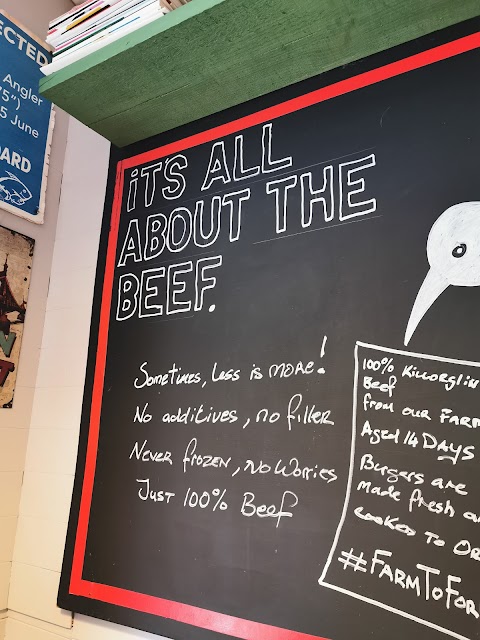 ECTED
Angler
5")
5 June
ARD
IT'S ALL
ABOUT THE
BEEF.
Sometimes, Less is more!
No additives, no filler
Never frozen, no worries
Just 100% Beef
100% Killorglin
Beef
from our FARM
Aged 14 DAYS
Burgers are
Made fresh a
cooked to Or
#FARMTOFOR